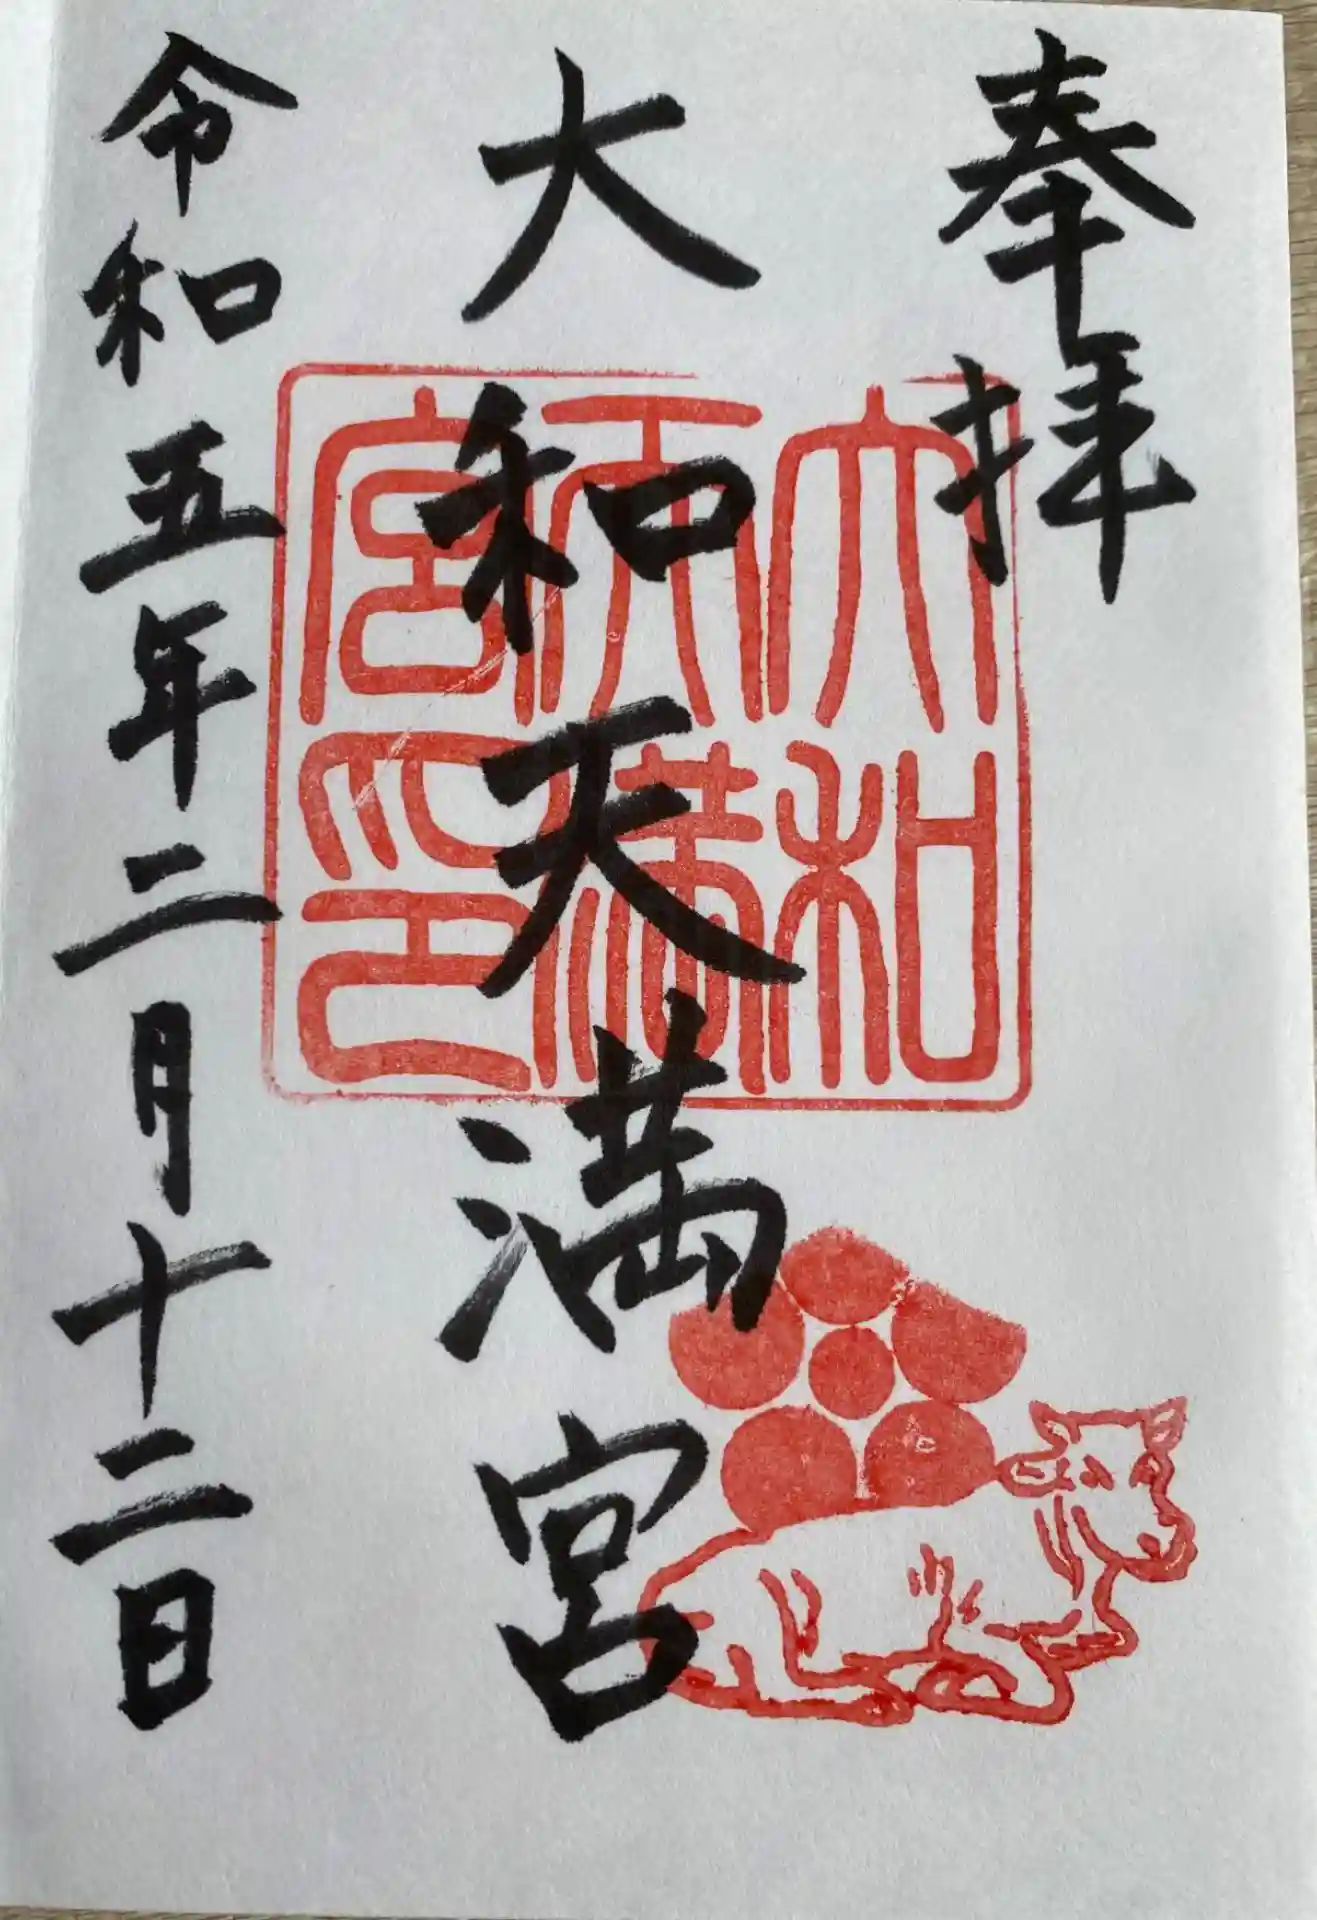 奉拝
大和天満宮
令和五年二月十二日
大和
天満
宮印